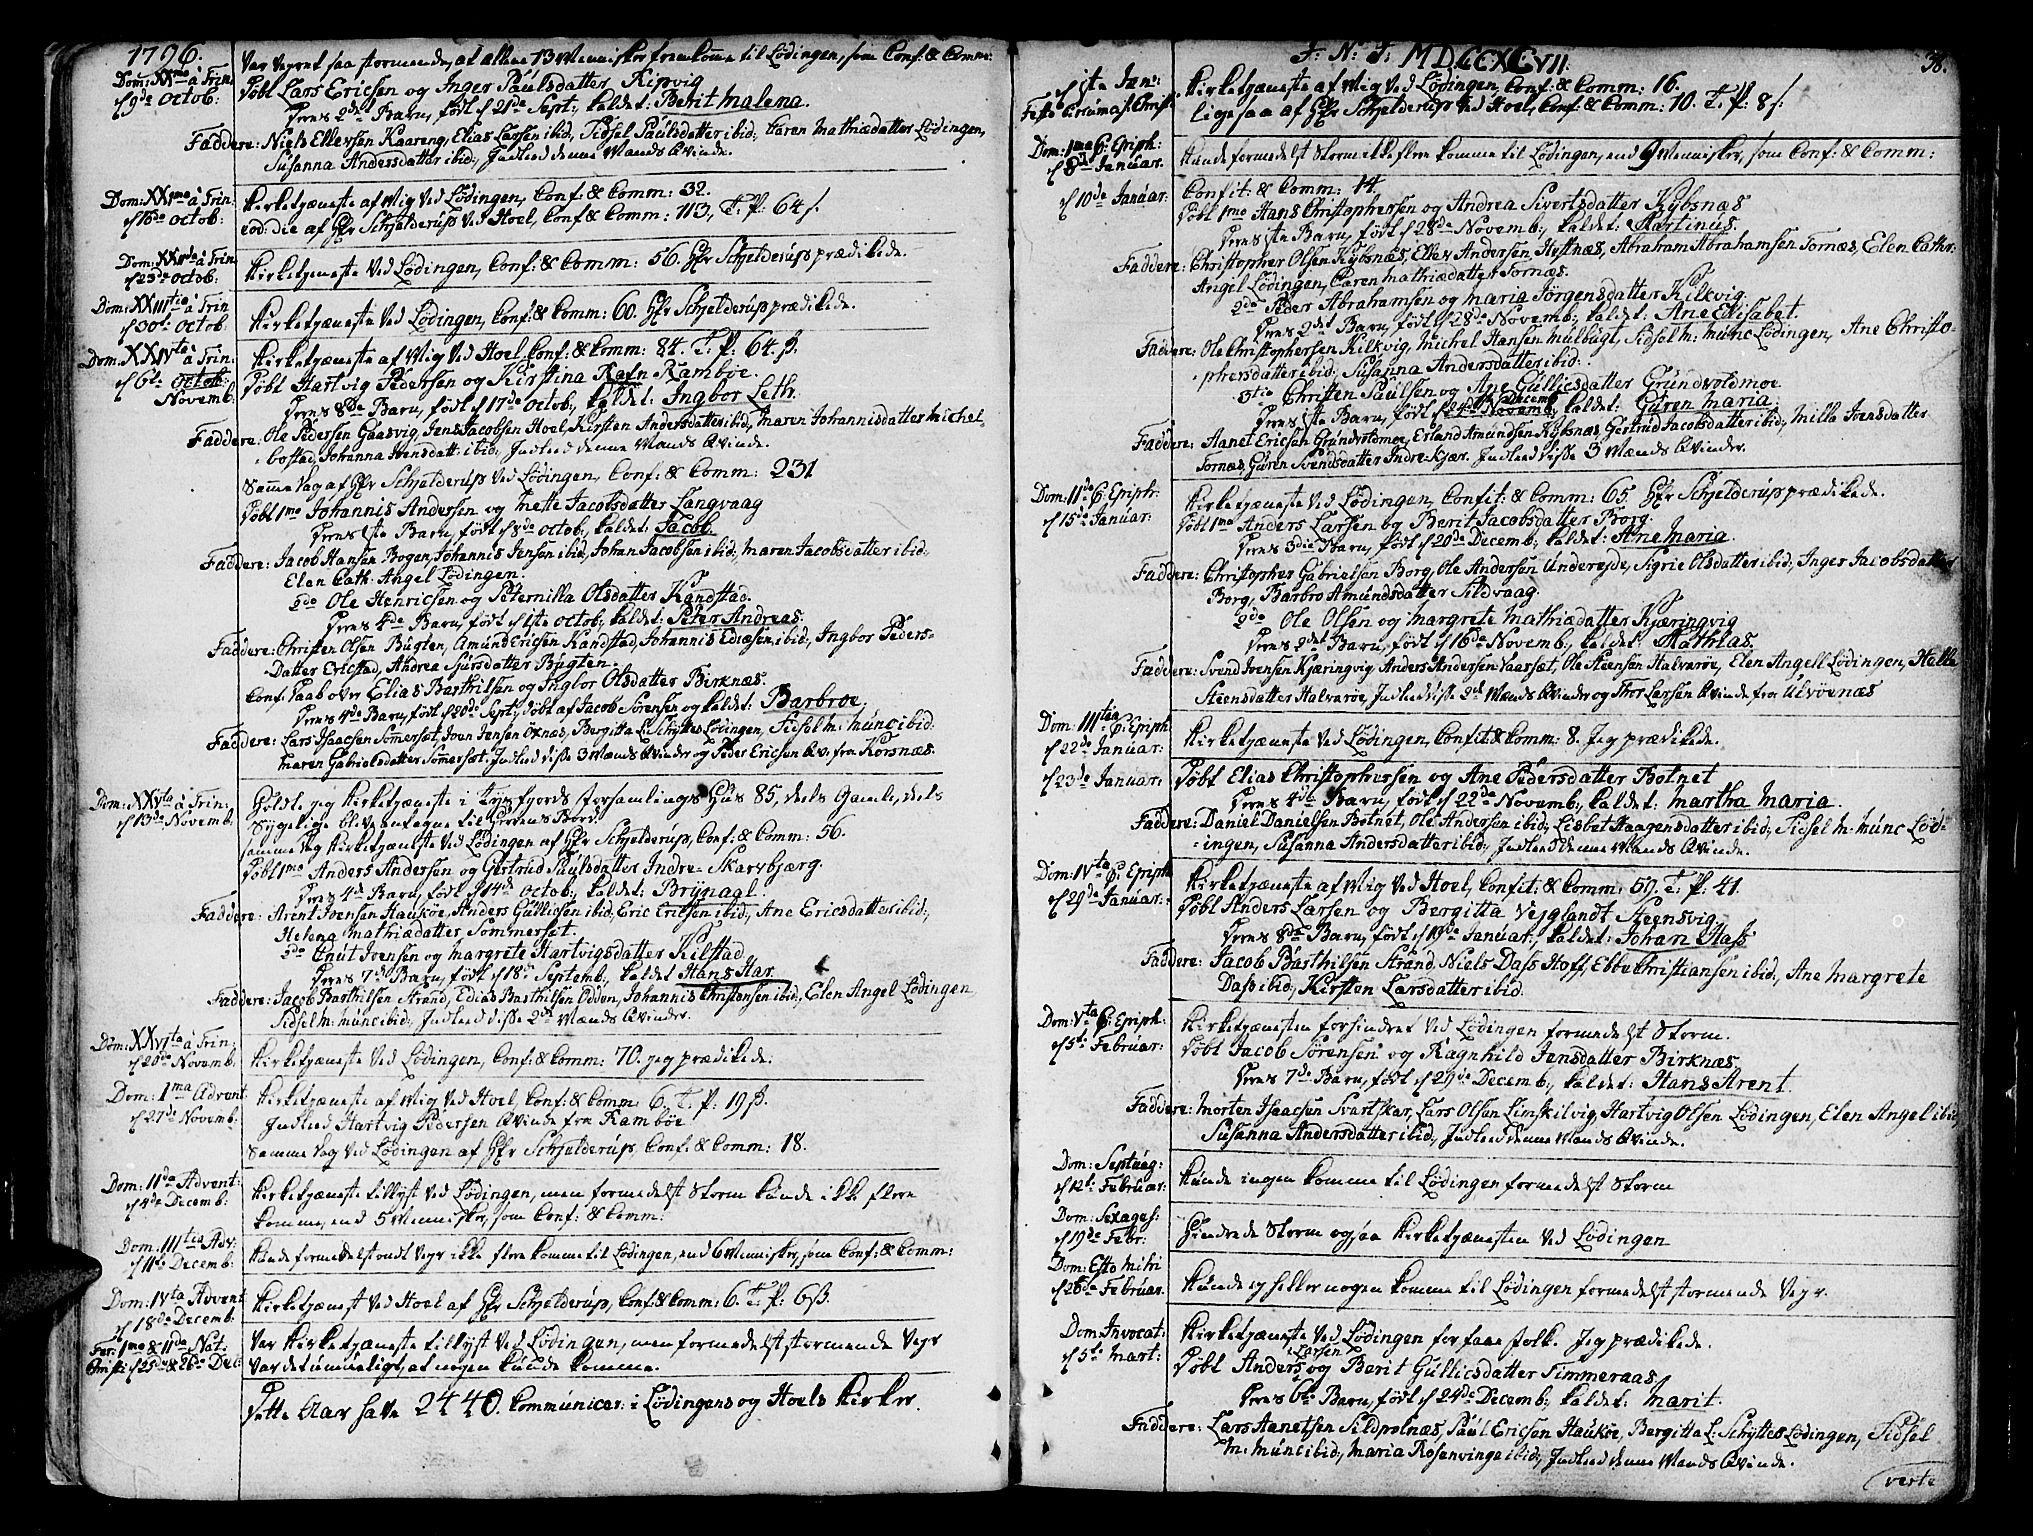 1796.
Dom: XXmo à Trin:
d 9de Octob:
Var Veyret saa stormende, at alleene 13 Mennisker fremkomme til Lødingen, som Conf: & Comm:
Døbt Lars Ericsen og Inger Paulsdatter Kipvig
Deres 2det Barn, født d 21de Sept:, kaldet: Berit Malena.
Faddere: Niels Ellevsen Kaareng, Elias Larsen ibid:, Sidsel Paulsdatter ibid:, Caren Mathiædatter Lødingen,
Susanna Andersdatter ibid:, Indleed denne Mands Qvinde.
Dom: XXImo à Trin:
d 16de Octob:
Kirketjæneste af Mig Ved Lødingen, Conf: & Comm: 32.
eod: die af Hr Schjelderup Ved Hoel, Conf: & Comm: 113, T. P: 64 s.
Dom: XXIIdo à Trin:
d 23de Octob:
Kirketjeneste Ved Lødingen, Conf: & Comm: 56. Hr Schjelderup prædikede.
Dom: XXIIItio à Trin
d 30te Octob:
Kirketjæneste Ved Lødingen, Conf: & Comm: 60. Hr Schjelderup prædikede.
Dom: XXIVta à Trin:
d 6te Octob:
Novemb:
Kirketjæneste af Mig Ved Hoel Conf: & Comm: 84. T. P: 64 ß.
Døbt Hartvig Pedersen og Kirstina Ravn Rambøe.
Deres 8de Barn, født d 17de Octob:, kaldet: Ingbor Leth.
Faddere: Ole Pedersen Gaasvig, Jens Jacobsen Hoel, Kirsten Andersdatter ibid:, Maren Johannisdatter Michel-
bostad, Johanna Jensdatt: ibid:, Indleed denne Mands Qvinde.
Samme Dag af Hr Schjelderup Ved Lødingen, Conf: & Comm: 231
Døbt 1mo Johannis Andersen og Mette Jacobsdatter Langvaag
Deres 1ste Barn, født d 8de Octob:, kaldet: Jacob.
Faddere: Jacob Hansen Bogen, Johannis Jensen ibid:, Johan Jacobsen ibid:, Maren Jacobsdatter ibid:,
Elen Cath: Angel Lødingen.
2do Ole Henricsen og Peternilla Olsdatter Kandstad
Deres 4de Barn, født d 1ste Octob:, kaldet: Peter Andreas.
Faddere: Christen Olsen Bugten, Amund Ericsen Kandstad, Johannis Ediæsen ibid:, Ingbor Peders-
Datter Ericstad, Andrea Sjursdatter Bugten.
Conf: Daab over Elias Barthilsen og Ingbor Olsdatter Birknæs.
Deres 4de Barn, født d 20de Sept:, døbt af Jacob Sørensen og kaldet: Barbroe,
Faddere: Lars Isaacsen Sommerset, Iven Jensen Oxnæs, Bergitta L: Schyttes Lødingen, Sidsel M: Munc ibid:
Maren Gabrielsdatter Somerset. Indleed disse 3 Mænds Qvinder og Peder Ericsen Qv: fra Korsnæs.
Dom: XXVta à Trin:
d 13de Novemb:
Holdte jeg Kirketjæneste i Tysfjords Forsamlings Huus 85, deels Gamle, deels
Sygelige bleve antagne til Herrens Bord.
Samme Dag Kirketjæneste Ved Lødingen af Hr Schjelderup, Conf: & Comm: 56.
Døbt 1mo Anders Andersen og Gertrud Paulsdatter Indre-Skarvbjærg.
Deres 4de Barn, født d 14de Octob:, kaldet: Brynael.
Faddere: Arent Ivensen Haukøe, Anders Gulliesen ibid:, Eric Ericsen ibid:, Ane Ericsdatter ibid:,
Helena Mathiædatter Sommerset.
2do Cnut Ivensen og Margrete Hartvigsdatter Kilstad
Deres 7de Barn, født d 18de Septemb:, kaldet Hans Har.
Faddere: Jacob Barthilsen Strand, Edias Barthilsen Odden, Johannis Christansen ibid:, Elen Angel Lødingen,
Sidsel M: Munc ibid:, Indleed disse 2de Mænds Qvinder.
Dom: XXVIta à Trin:
d 20de Novemb:
Kirketjæneste Ved Lødingen, Conf: & Comm: 70. jeg prædikede.
Dom: 1ma Advent
d 27de Novemb:
Kirketjæneste af Mig Ved Hoel, Conf: & Comm: 6. T. P: 19 ß.
Indleed Hartvig Pedersen Qvinde fra Rambøe
Samme Dag Ved Lødingen af Hr Schjelderup, Conf: & Comm: 18.
Dom: IIda Advent:
d 4de Decemb:
Kirketjæneste tillyst Ved Lødingen, men formedelst Storm kunde ikke flere
komme, end 5 Mennisker, som Conf: & Comm:
Dom: IIItia Adv:
d 11te Decemb:
Kunde formedelst ondt Vejr ikke flere komme til Lødingen, end 6 Mennisker, som Conf: & Comm:
Dom: IVta Advent
d 18de Decemb:
Kirketjænest Ved Hoel af Hr Schjelderup, Conf: & Comm: 6. T. P: 6 ß.
Fer: 1ma & IIda Nat:
Christi d 25de & 26de Dec:
Var Kirketjæneste tillyst Ved Lødingen, men formedelst stormende Vejr
Var det ummeligt, at nogen kunde komme.
Dette Aar have 2440. Communicer: i Lødingens og Hoels Kirker.
38.
I. N. J. MDCCXCVII.
d 1ste Jan:
Festo Circumcis: Christi
Kirketjæneste af Mig Ved Lødingen, Conf: & Comm: 16.
Ligesaa af Hr Schjelderup Ved Hoel, Conf: & Comm: 10. T. P: 8 s.
Dom: 1ma p: Epiph:
d 8de Januar.
Kunde formedelst Storm ikke flere komme til Lødingen, end 9 Mennisker, som Conf: & Comm:
d 10de Januar:
Confit: & Comm: 14.
Døbt 1mo Hans Christophersen og Andrea Sivertsdatter Kybsnæs
Deres 1ste Barn, født d 28de Novemb:, kaldet: Martinus.
Faddere: Christopher Olsen Kybsnæs, Eller Andersen Hustnæs, Abraham Abrahamsen Tornæs, Elen Cathr:
Angel Lødingen, Caren Mathiædatter Tornæs.
2do Peder Abrahamsen og Maria Jørgensdatter Kilkvig
Deres 2det Barn, født d 28de Novemb:, kaldet: Ane Elisabet.
Faddere: Ole Christophersen Kilkvig, Michel Hansen Mulbugt, Sidsel M: Munc Lødingen, Ane Christo-
phersdatter ibid:, Susanna Andersdatter ibid:
3tio Christen Paulsen og Ane Gulliesdatter Grundvoldmoe
Deres 1ste Barn, født d 24de Novemb: Decemb:, kaldet: Guren Maria.
Faddere: Aanet Ericsen Grundvoldmoe, Erland Amundsen Kybsnæs, Gertrud Jacobsdatter ibid:, Milla Ivensdatter
Tornæs, Guren Svendsdatter Indre-Kjær. Indleed disse 3 Mænds Qvinder.
Dom: IIda p: Epiphr:
d 15de Januar:
Kirketjæneste Ved Lødingen, Confit: & Comm: 65. Hr Schjelderup prædikede.
Døbt 1mo Anders Larsen og Berit Jacobsdatter Borg.
Deres 3die Barn, født d 20de Decemb:, kaldet: Ane Maria.
Faddere: Christopher Gabrielsen Borg, Ole Andersen Undereyde, Sigrie Olsdatter ibid:, Inger Jacobsdatter
Borg, Barbro Amundsdatter Sildvaag.
2do Ole Olsen og Margrete Mathiædatter Kjæringvig
Deres 2det Barn, født d 16de Novemb:, kaldet: Mathias.
Faddere: Svend Ivensen Kjæringvig Anders Andersen Vaarset, Ole Steensen Halvarøe, Elen Angell Lødingen, Halla
Steensdatter Halvarøe, Indleed disse 2de Mænds Qvinder og Thor Larsen Qvinde fra Ulvøenæs
Dom: IIItia p: Epiph
d 22de Januar:
Kirketjæneste Ved Lødingen, Confit: & Comm: 8. Jeg prædikede.
d 23de Januar:
Døbt Elias Christophersen og Ane Pedersdatter Botnet
Deres 4de Barn, født d 22de Novemb:, kaldet: Martha Maria.
Faddere: Daniel Danielsen Botnet, Ole Andersen ibid:, Lisbet Haagensdatter ibid:, Sidsel M: Munc Lød-
ingen, Susanna Andersdatter ibid:, Indleed denne Mands Qvinde.
Dom: IVta p: Epiph
d 29de Januar:
Kirketjæneste af Mig Ved Hoel, Confit: & Comm: 59. T. P: 41.
Døbt Anders Larsen og Bergitta Vejglandt Steensvig,
Deres 8de Barn, født d 19de Januar:, kaldet: Johan Dass
Faddere: Jacob Barthilsen Strand, Niels Dass Hoff, Ebbe Christiansen ibid:, Ane Margrete
Dass ibid:, Kirsten Larsdatter ibid:
Dom: Vta p: Epiph:
d 5te Februar:
Kirketjænesten forhindret Ved Lødingen formedelst Storm.
Døbt Jacob Sørensen og Ragnhild Jensdatter Birknæs,
Deres 7de Barn, født d 29de Decemb:, kaldet: Hans Arent.
Faddere: Morten Isaacsen Svartskar, Lars Olsen Limskilvig, Hartvig Olsen Lødingen, Elen Angel ibid
Susanna Andersdatter ibid:, Indleed denne Mands Qvinde.
Dom: Septuag:
d 12te Februar:
Kunde ingen komme til Lødingen formedelst Storm
Dom: Sexages:
d 19de Febr:
Hindrede Storm ogsaa Kirketjænesten Ved Lødingen
Dom: Esto Mihi
d 26de Februar.
Kunde ej heller nogen komme til Lødingen formedelst stormende Vejr.
Dom: Invocat:
d 5te Mart:
Kirketjæneste Ved Lødingen for faae Folk. Jeg prædikede.
Døbt Anders Larsen og Berit Gulliesdatter Timmeraas,
Deres 6te Barn, født d 24de Decemb:, kaldet: Marit.
Faddere: Lars Aanetsen Sildpolnæs, Paul Ericsen Haukøe, Bergitta L: Schyttes Lødingen, Sidsel
M: Munc ibid:, Maria Rosenvinge ibid:, Indleed denne Mands Qvinde.
verte